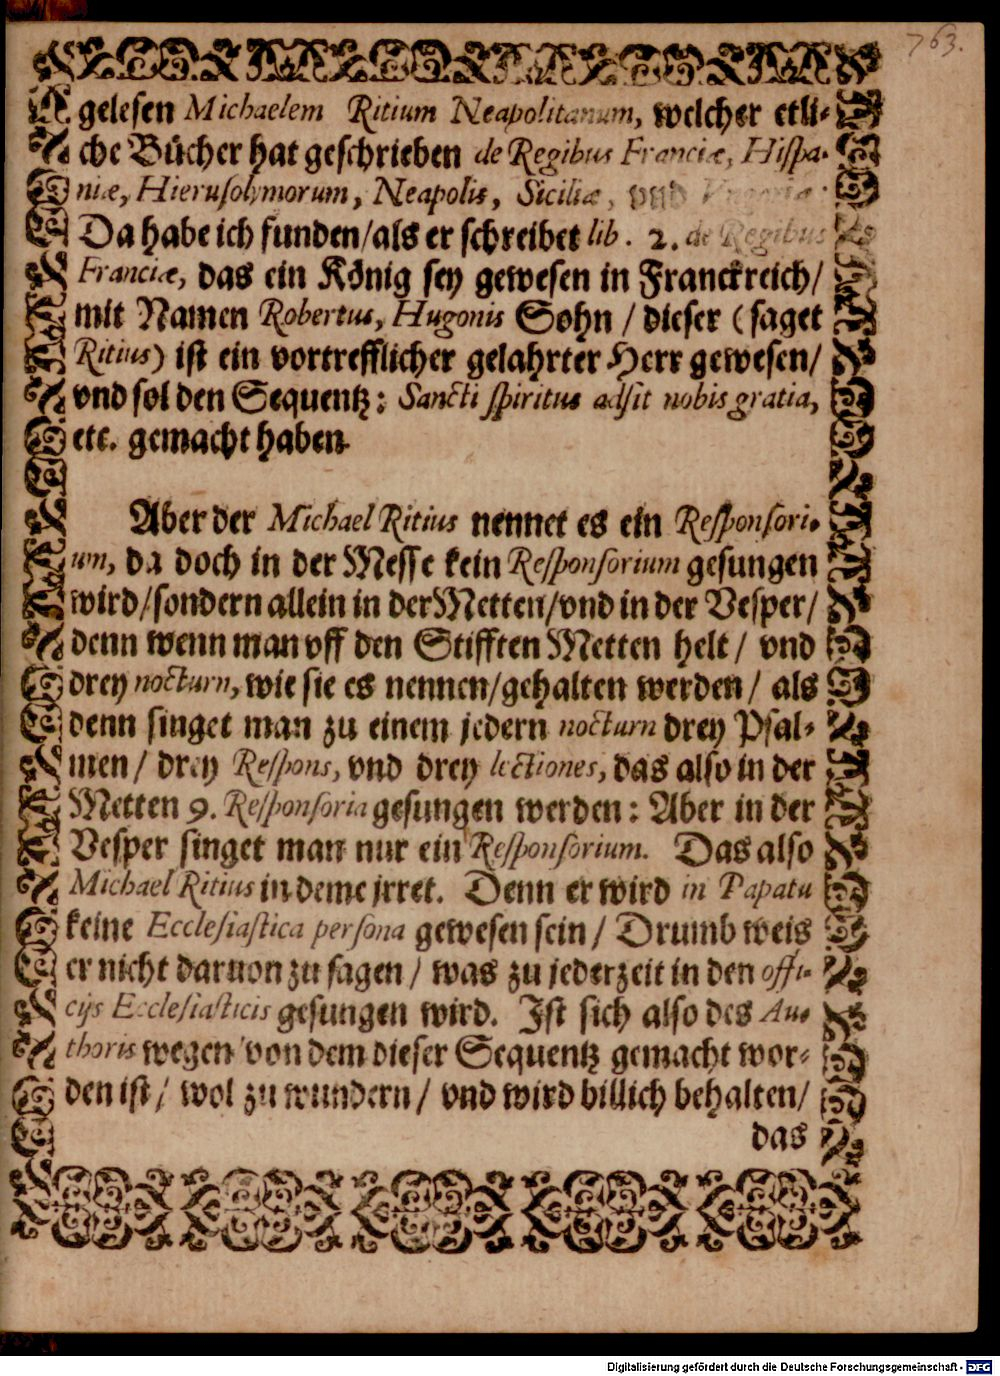 763.
gelesen Michaelem Ritium Neapolitanum, welcher etli-
che Bücher hat geschrieben de Regibus Franciæ, Hispa-
niæ, Hierusolymorum, Neapolis, Siciliæ, vnd
Da habe ich funden/als er schreibet lib. 2. de Regibus
Franciæ, das ein König sey gewesen in Franckreich/
mit Namen Robertus, Hugonis Sohn / dieser (saget
Ritius) ist ein vortrefflicher gelahrter Herr gewesen/
vnd sol den Sequentz: Sancti spiritus adsit nobis gratia,
etc. gemacht haben.
Aber der Michael Ritius nennet es ein Responsori-
um, da doch in der Messe kein Responsorium gesungen
wird/sondern allein in der Metten/vnd in der Vesper/
denn wenn man vff den Stifften Metten helt / vnd
drey nocturn, wie sie es nennen/gehalten werden / als
denn singet man zu einem jedern nocturn drey Psal-
men / drey Respons, vnd drey lectiones, das also in der
Metten 9. Responsoria gesungen werden: Aber in der
Vesper singet man nur ein Responsorium. Das also
Michael Ritius in deme jrret. Denn er wird in Papatu
keine Ecclesiastica persona gewesen sein / Drumb weis
er nicht daruon zu sagen / was zu jederzeit in den offi-
cijs Ecclesiasticis gesungen wird. Ist sich also des Au-
thoris wegen von dem dieser Sequentz gemacht wor-
den ist / wol zu wundern / vnd wird billich behalten/
das
Digitalisierung gefördert durch die Deutsche Forschungsgemeinschaft - DFG